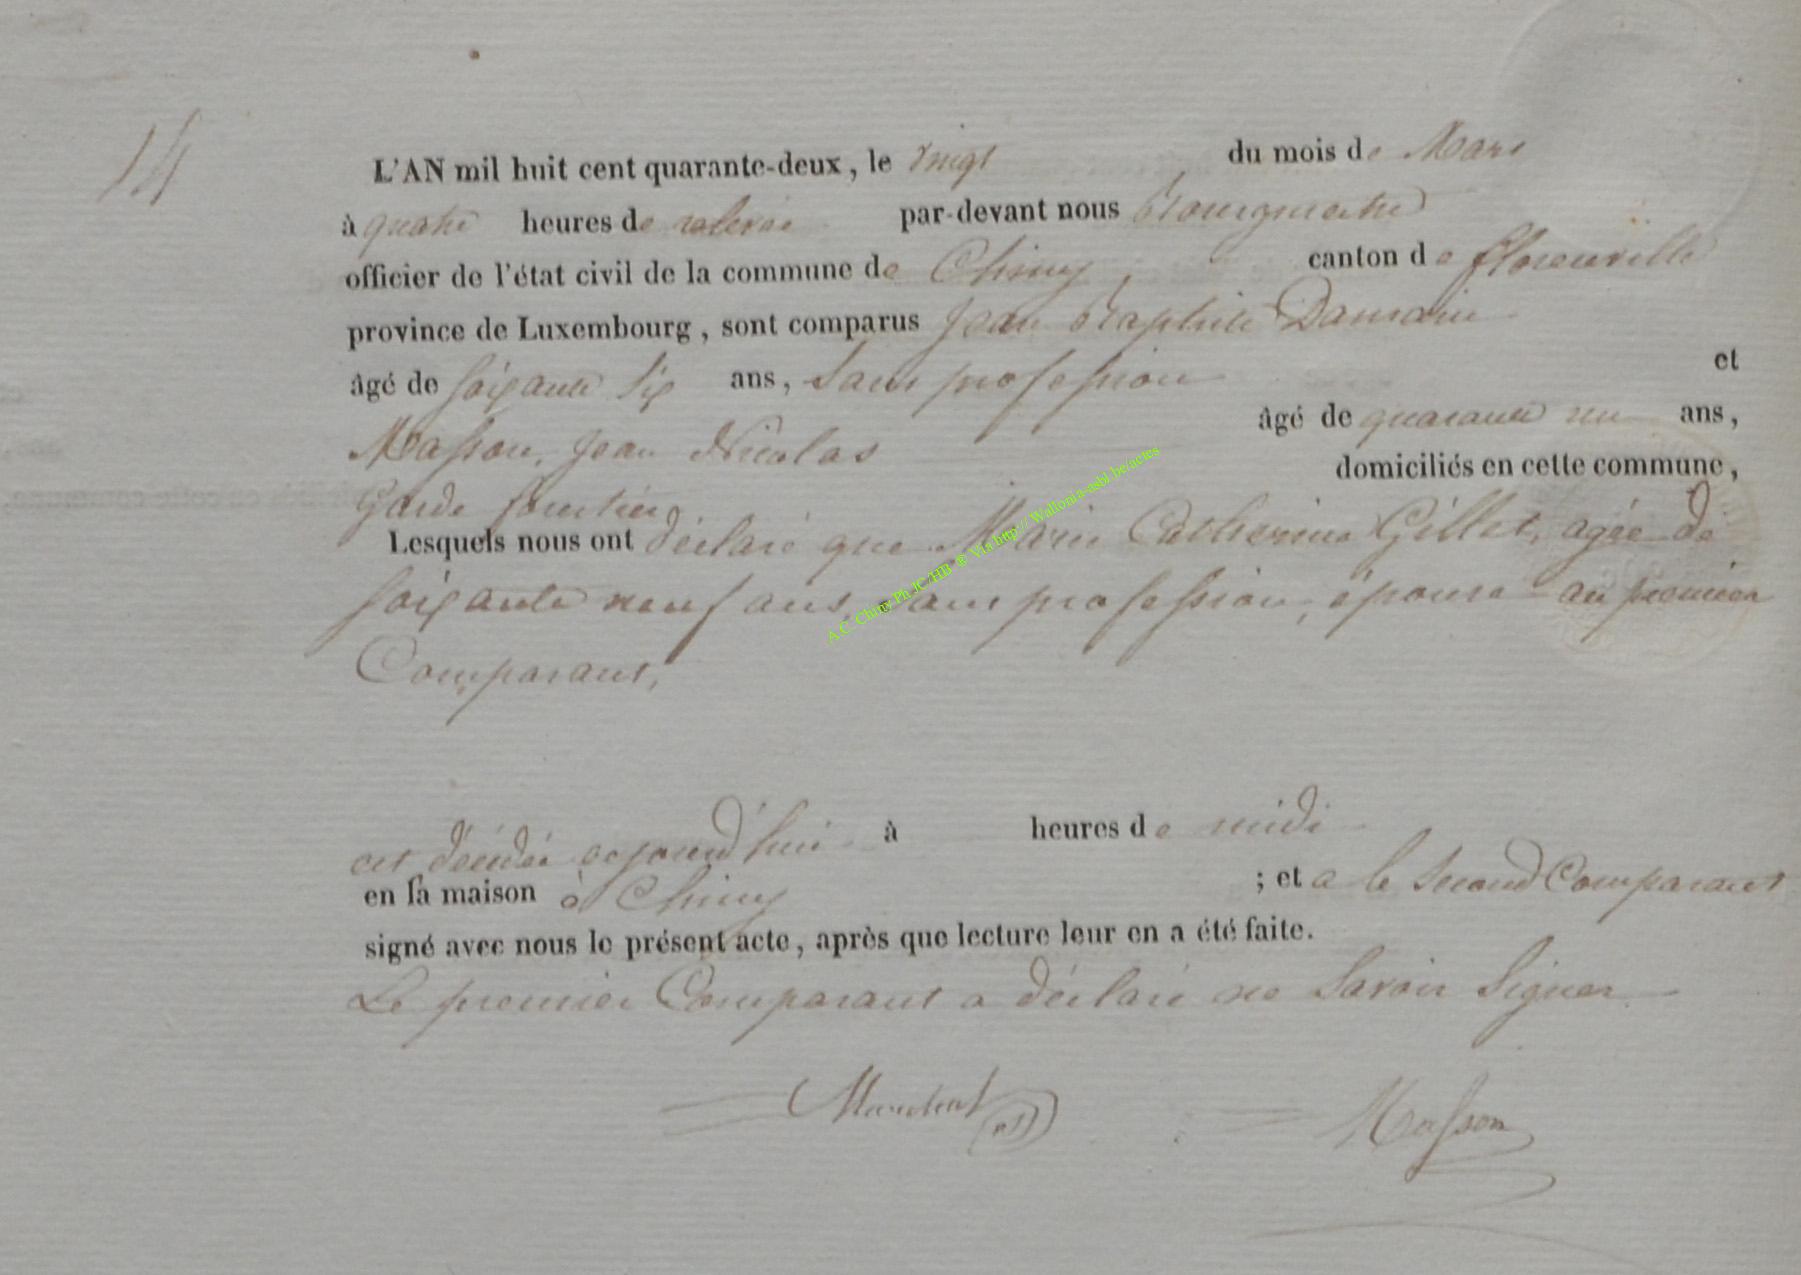 14
L'AN mil huit cent quarante-deux, le vingt du mois de Mars
à quatre heures de relevée par-devant nous Bourgmestre
officier de l'état civil de la commune de Chiny, canton de florenville
province de Luxembourg, sont comparus Jean Baptiste Damain
âgé de soixante six ans, sans profession et
Masson, Jean Nicolas âgé de quarante un ans,
Garde forestier domiciliés en cette commune,
Lesquels nous ont déclaré que Marie Catherine Gillet, agée de
soixante neuf ans, sans profession, épouse au premier
Comparant,
est décédée aujourd'hui à heures de midi
en sa maison à Chiny ; et a le second Comparant
signé avec nous le présent acte, après que lecture leur en a été faite.
Le premier Comparant a déclaré ne savoir signer
Masson
A.C. Chiny Ph JC/HB @ Via http://Wallonia-asbl.be/actes